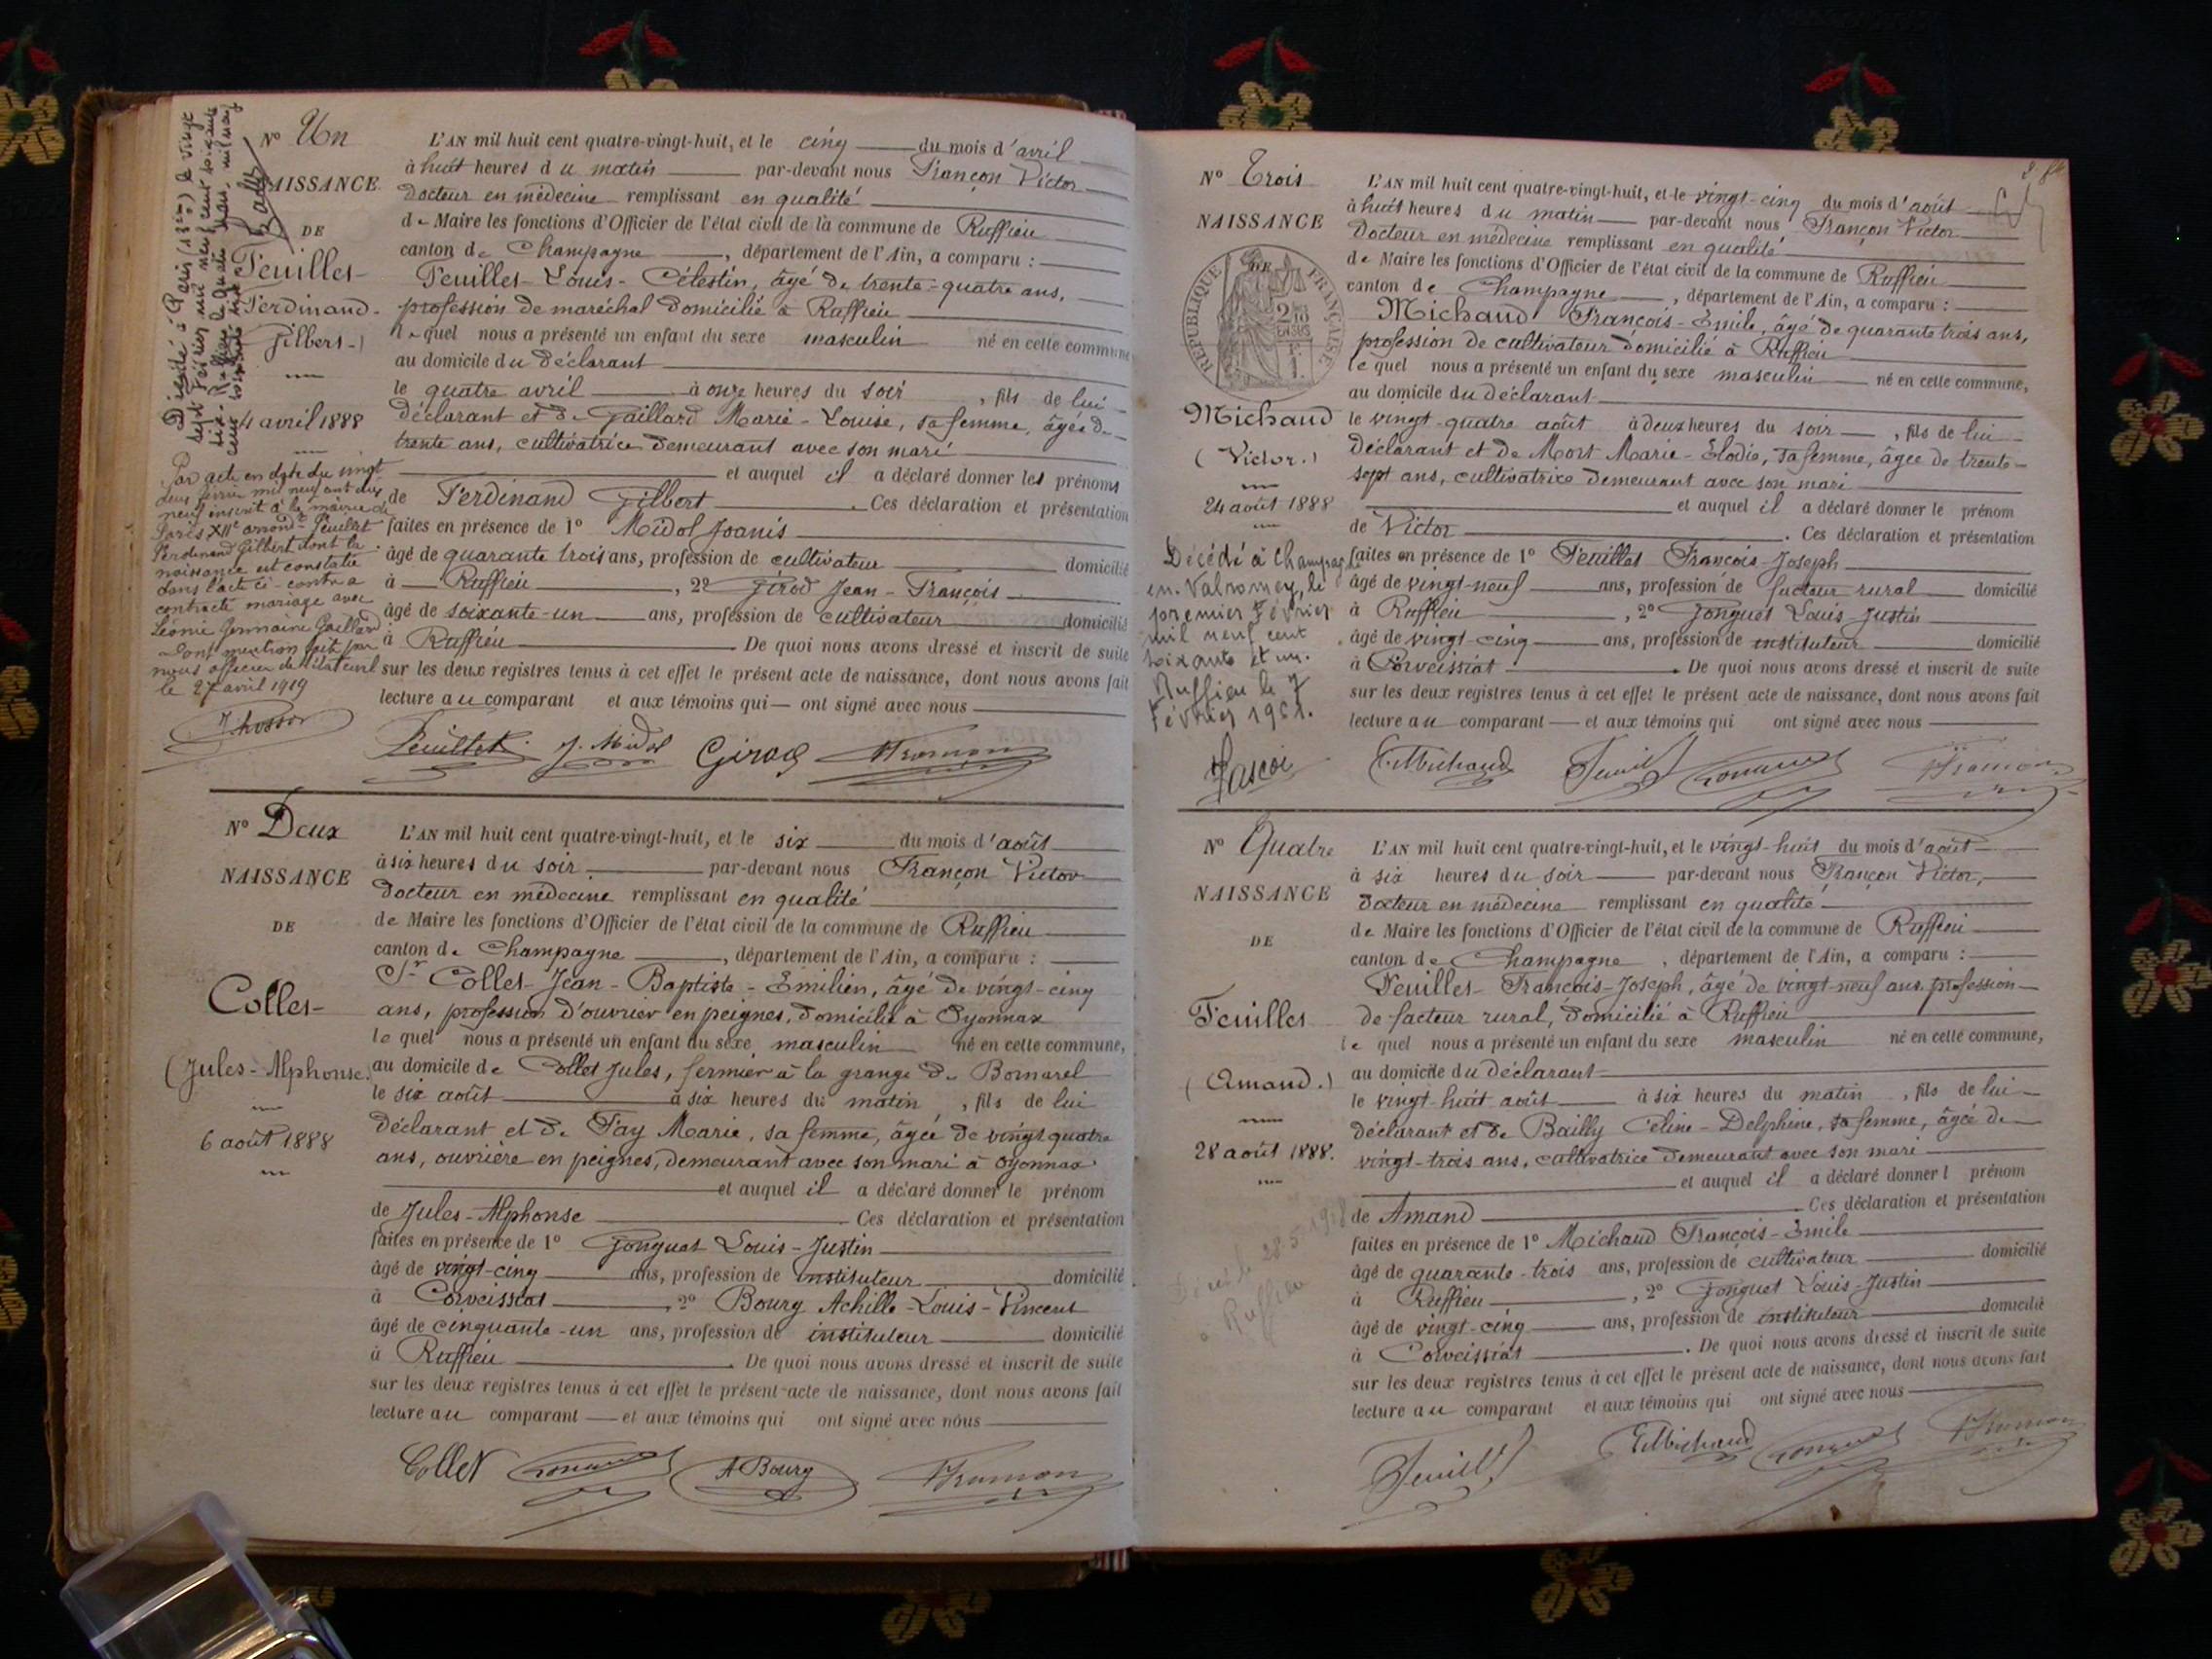 Nº Un
NAISSANCE
DE
Feuillet
Ferdinand
Gilbert
4 avril 1888
Décédé à Paris (13e) le vingt
sept février mil neuf cent soixante
six. Ruffieu le quatre mars, mil neuf
cent soixante six.
Bailly
Par acte en date du vingt
deux février mil neuf cent dix
neuf inscrit à la mairie de
Paris XIIe arrondt Feuillet
Ferdinand Gilbert dont la
naissance est constatée
dans l'acte ci-contre a
contracté mariage avec
Léonie Germaine Gaillard
Dont mention faite par
nous officier de l'état civil
le 27 avril 1919
L'AN mil huit cent quatre-vingt-huit, et le cinq du mois d'avril
à huit heures du matin par-devant nous Françon Victor
Docteur en médecine remplissant en qualité
de Maire les fonctions d'Officier de l'état civil de la commune de Ruffieu
canton de Champagne, département de l'Ain, a comparu :
Feuillet Louis-Célestin, âgé de trente-quatre ans,
profession de maréchal domicilié à Ruffieu
lequel nous a présenté un enfant du sexe masculin né en cette commune
au domicile du déclarant
le quatre avril à onze heures du soir, fils de lui
déclarant et de Gaillard Marie-Louise, sa femme, âgée de
trente ans, cultivatrice demeurant avec son mari
et auquel il a déclaré donner les prénoms
de Ferdinand Gilbert. Ces déclaration et présentation
faites en présence de 1º Midol Joanis
âgé de quarante trois ans, profession de cultivateur domicilié
à Ruffieu, 2º Girod Jean-François
âgé de soixante-un ans, profession de cultivateur domicilié
à Ruffieu. De quoi nous avons dressé et inscrit de suite
sur les deux registres tenus à cet effet le présent acte de naissance, dont nous avons fait
lecture au comparant et aux témoins qui ont signé avec nous
Feuillet J. Midol Girod Françon
Nº Deux
NAISSANCE
DE
Collet
(Jules-Alphonse.)
6 août 1888
L'AN mil huit cent quatre-vingt-huit, et le six du mois d'août
à six heures du soir par-devant nous Françon Victor
Docteur en médecine remplissant en qualité
de Maire les fonctions d'Officier de l'état civil de la commune de Ruffieu
canton de Champagne, département de l'Ain, a comparu :
Sr Collet Jean-Baptiste-Emilien, âgé de vingt-cinq
ans, profession d'ouvrier en peignes, domicilié à Oyonnax
lequel nous a présenté un enfant du sexe masculin né en cette commune,
au domicile de Collet Jules, fermier à la grange de Bomarel
le six août à six heures du matin, fils de lui
déclarant et de Fay Marie, sa femme, âgée de vingt quatre
ans, ouvrière en peignes, demeurant avec son mari à Oyonnax
et auquel il a déclaré donner le prénom
de Jules-Alphonse. Ces déclaration et présentation
faites en présence de 1º Gonguet Louis-Justin
âgé de vingt-cinq ans, profession de instituteur domicilié
à Corveissiat, 2º Bourg Achille-Louis-Vincent
âgé de cinquante-un ans, profession de instituteur domicilié
à Ruffieu. De quoi nous avons dressé et inscrit de suite
sur les deux registres tenus à cet effet le présent acte de naissance, dont nous avons fait
lecture au comparant et aux témoins qui ont signé avec nous
Collet A Bourg Françon
Nº Trois
NAISSANCE
DE
RÉPUBLIQUE FRANÇAISE
Michaud
(Victor.)
24 août 1888
Décédé à Champagne
en-Valromey, le
premier Février
mil neuf cent
soixante et un.
Ruffieu le 7
Février 1961.
L'AN mil huit cent quatre-vingt-huit, et le vingt-cinq du mois d'août
à huit heures du matin par-devant nous Françon Victor
Docteur en médecine remplissant en qualité
de Maire les fonctions d'Officier de l'état civil de la commune de Ruffieu
canton de Champagne, département de l'Ain, a comparu :
Michaud François-Emile, âgé de quarante trois ans,
profession de cultivateur domicilié à Ruffieu
lequel nous a présenté un enfant du sexe masculin né en cette commune,
au domicile du déclarant
le vingt-quatre août à deux heures du soir, fils de lui
déclarant et de Mort Marie-Elodie, sa femme, âgée de trente-
sept ans, cultivatrice demeurant avec son mari
et auquel il a déclaré donner le prénom
de Victor. Ces déclaration et présentation
faites en présence de 1º Feuillet François-Joseph
âgé de vingt-neuf ans, profession de facteur rural domicilié
à Ruffieu, 2º Gonguet Louis Justin
âgé de vingt-cinq ans, profession de instituteur domicilié
à Corveissiat. De quoi nous avons dressé et inscrit de suite
sur les deux registres tenus à cet effet le présent acte de naissance, dont nous avons fait
lecture au comparant et aux témoins qui ont signé avec nous
E. Michaud Feuillet Françon
Nº Quatre
NAISSANCE
DE
Feuillet
(Amand.)
28 août 1888.
Décédé 28-5-1918
à Ruffieu
L'AN mil huit cent quatre-vingt-huit, et le vingt-huit du mois d'août
à six heures du soir par-devant nous Françon Victor,
Docteur en médecine remplissant en qualité
de Maire les fonctions d'Officier de l'état civil de la commune de Ruffieu
canton de Champagne, département de l'Ain, a comparu :
Feuillet François-Joseph, âgé de vingt-neuf ans, profession
de facteur rural, domicilié à Ruffieu
lequel nous a présenté un enfant du sexe masculin né en cette commune,
au domicile du déclarant
le vingt-huit août à six heures du matin, fils de lui
déclarant et de Bailly Céline-Delphine, sa femme, âgée de
vingt-trois ans, cultivatrice demeurant avec son mari
et auquel il a déclaré donner l prénom
de Amand. Ces déclaration et présentation
faites en présence de 1º Michaud François-Emile
âgé de quarante-trois ans, profession de cultivateur domicilié
à Ruffieu, 2º Gonguet Louis-Justin
âgé de vingt-cinq ans, profession de instituteur domicilié
à Corveissiat. De quoi nous avons dressé et inscrit de suite
sur les deux registres tenus à cet effet le présent acte de naissance, dont nous avons fait
lecture au comparant et aux témoins qui ont signé avec nous
Feuillet E. Michaud Françon